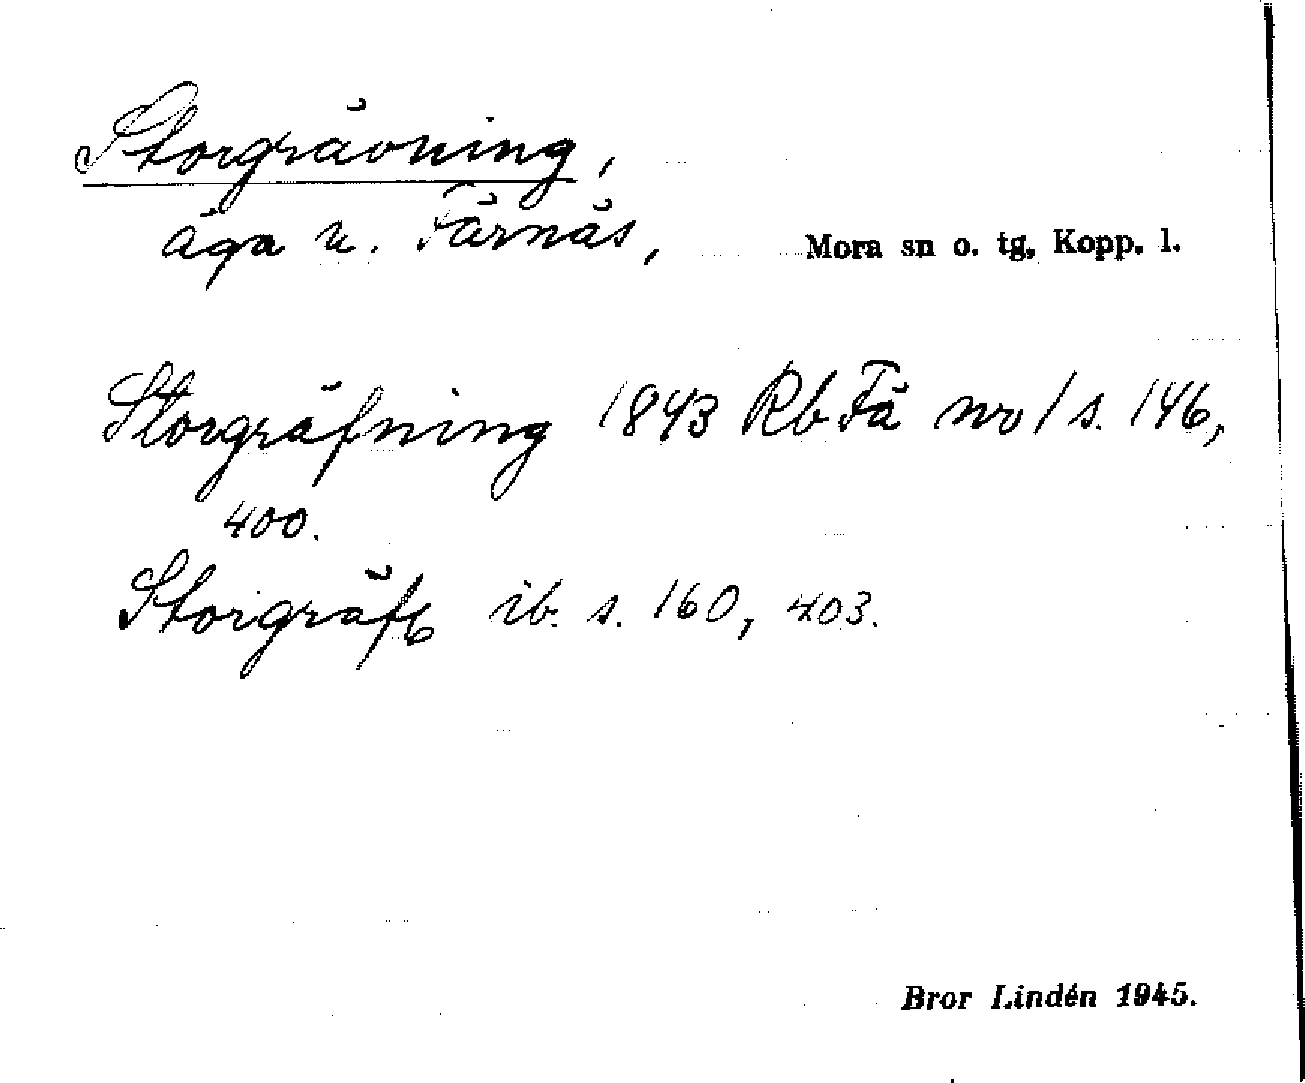 Storgrävning,
äga u. Färnäs, Mora sn o. tg, Kopp. l.
Storgräfning 1843 Rb Fä nro 1 s. 146,
400.
Storgräf ib. s. 160, 403.
Bror Lindén 1945.